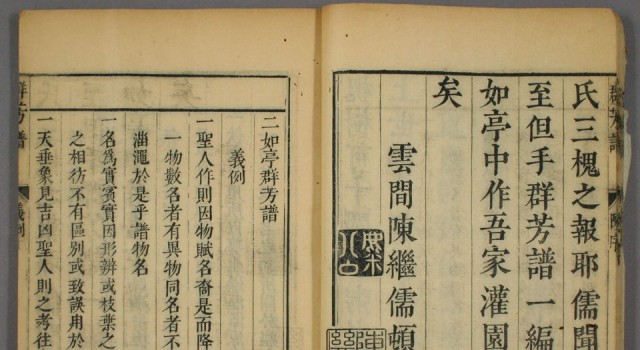 氏三槐之報耶儒聞
至但手群芳譜一編
如亭中作吾家灌園
矣
雲間陳繼儒頓
麋公
群芳譜
二如亭群芳譜
義例
一聖人作則因物賦名裔是而降
一物數名者有異物同名者不
淄澠於是乎譜物名
一名爲實賓實因形辨或枝葉之
之相彷不有區別或致誤用於
一天垂象見吉凶聖人則之考往
群芳譜
義例